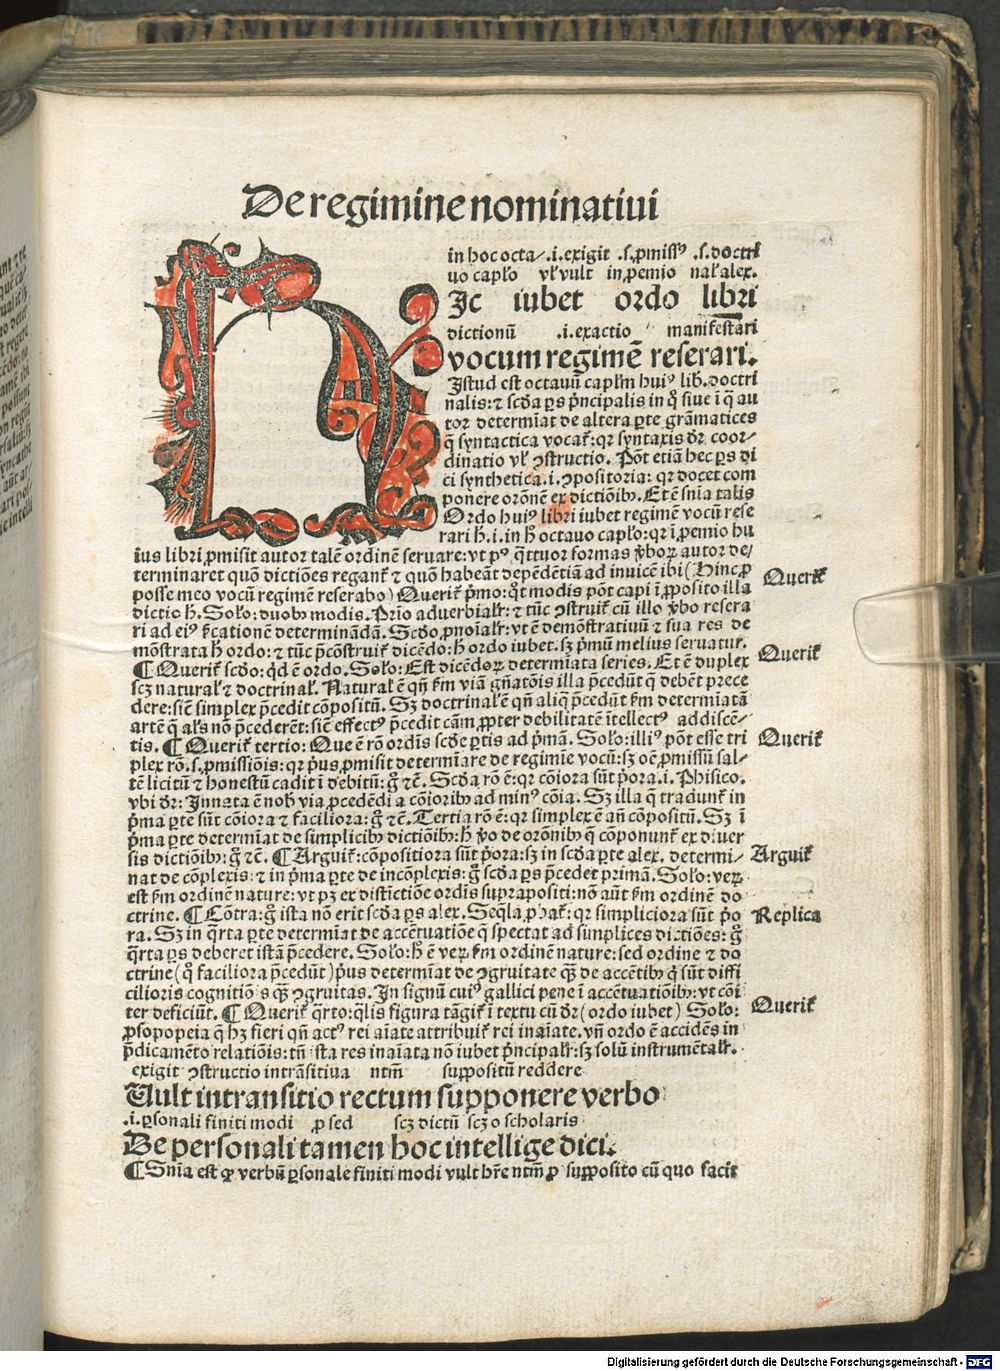 De regimine nominatiui
in hoc octa .i. exigit .s. p̱miſſꝰ .s. doctri
uo caplo vl̓ vult in p̱emio nal̓ alex.
Ic iubet ordo libri
dictionū .i. exactio manifeſtari
vocum regimē reſerari.
Iſtud eſt octauū caplm huiꝰ lib. doctri
nalis: ⁊ ſcd̓a ꝑs p̄ncipalis in q̄ ſiue ī q̄ au
tor determīat de altera ꝑte grāmatices
q̄ ſyntactica vocat᷑: qr ſyntaxis dr̄ coor-
dinatio vl̓ ꝯſtructio. Pōt etiā hec ꝑs di
ci ſynthetica .i. ꝯpoſitoria: qr docet com
ponere orōnē ex dictiōibꝫ. Et ē ſnīa talis
Ordo huiꝰ libri iubet regimē vocū reſe
rari h̄ .i. in h̄ octauo caplo: qr ī p̱emio hu
ius libri p̱miſit autor talē ordinē ſeruare: vt pꝰ q̄ttuor formas v̓boꝝ autor de-
terminaret quō dictiōes regant᷑ ⁊ quō habeāt depēdētiā ad inuicē ibi (Hinc ꝓ
poſſe meo vocū regimē reſerabo) Querit᷑ p̄mo: q̊t modis pōt capi ī ꝓpoſito illa
dictio h̄. Solo: duobꝫ modis. Prīo aduerbialr̄: ⁊ tūc ꝯſtruit᷑ cū illo v̓bo reſera
ri ad eiꝰ ſ̓cationē determinādā. Scdo ꝓnoīalr̄: vt ē demōſtratiuū ⁊ ſua res de
mōſtrata h̄ ordo: ⁊ tūc p̄cōſtruit᷑ dicēdo: h̄ ordo iubet. ſꝫ p̄mū melius ſeruatur.
¶ Querit᷑ ſcdo: qd ē ordo. Solo: Eſt dicēdoꝝ determīata ſeries. Et ē duplex
ſcꝫ natural̓ ⁊ doctrinal̓. Natural̓ ē qn̄ ẜm viā gn̄atōis illa p̄cedūt q̄ debēt prece
dere: ſic̄ ſimplex p̄cedit cōpoſitū. Sꝫ doctrinal̓ ē qn̄ aliq̄ p̄cedūt ẜm determīatā
artē q̄ al̓s nō p̄cederēt: ſic̄ effectꝰ p̄cedit cām ꝓpter debilitatē ītellectꝰ addiſcē-
tis. ¶ Querit᷑ tertio: Que ē rō ordīs ſcd̓e ꝑtis ad p̄mā. Solo: illiꝰ pōt eſſe tri
plex rō. ſ. p̱miſſiōis: qr p̄us p̱miſit determīare de regimīe vocū: ſꝫ oē p̱miſſū ſal-
tē licitū ⁊ honeſtū cadit ī debitū: g̊ ⁊c̄. Scd̓a rō ē: qr cōiora ſūt p̄ora .i. Phiſico.
vbi dr̄: Innata ē nob̄ via ꝓcedēdi a cōioribꝫ ad minꝰ cōia. Sꝫ illa q̄ tradunt᷑ in
p̄ma ꝑte ſūt cōiora ⁊ faciliora: g̊ ⁊c̄. Tertia rō ē: qr ſimplex ē an̄ cōpoſitū. Sꝫ ī
p̄ma ꝑte determīat de ſimplicibꝫ dictiōibꝫ: h̄ v̓o de orōnibꝫ q̄ cōponunt᷑ ex diuer
ſis dictiōibꝫ: g̊ ⁊c̄. ¶ Arguit᷑: cōpoſitiora ſūt p̄ora: ſꝫ in ſcd̓a ꝑte alex. determi-
nat de cōplexis: ⁊ in p̄ma ꝑte de incōplexis: g̊ ſcd̓a ꝑs p̄cedet primā. Solo: veꝝ
eſt ẜm ordinē nature: vt pꝫ ex diſtīctiōe ordīs ſuprapoſiti: nō aūt ẜm ordinē do
ctrine. ¶ Cōtra: g̊ iſta nō erit ſcd̓a ꝑs alex. Seq̄la ꝓbat᷑: qr ſimpliciora ſūt p̄o
ra. Sꝫ in q̄rta ꝑte determīat de accētuatiōe q̄ ſpectat ad ſimplices dictiōes: g̊
q̄rta ꝑs deberet iſtā p̄cedere. Solo: h̄ ē veꝝ ẜm ordinē nature: ſed ordine ⁊ do
ctrine (q̄ faciliora p̄cedūt) p̄us determīat de ꝯgruitate qꝫ̄ de accētibꝫ q̄ ſūt diffi
cilioris cognitiōis qꝫ̄ ꝯgruitas. In ſignū cuiꝰ gallici pene ī accētuatiōibꝫ: vt cōi
ter deficiūt. ¶ Querit᷑ q̄rto: q̄lis figura tāgit᷑ ī textu cū dr̄ (ordo iubet) Solo:
ꝓſopopeia q̄ hꝫ fieri qn̄ actꝰ rei aīate attribuit᷑ rei inaīate. vn̄ ordo ē accidēs in
p̄dicamēto relatiōis: tn̄ iſta res inaīata nō iubet p̄ncipalr̄: ſꝫ ſolū inſtrumētalr̄.
exigit ꝯſtructio intrāſitiua ntm̄ ſuppoſitū reddere
Uult intranſitio rectum ſupponere verbo
.i. ꝑſonali finiti modi ꝓ ſed ſcꝫ dictū ſcꝫ o ſcholaris
De perſonali tamen hoc intellige dici.
¶ Snīa eſt ꝙ verbū ꝑſonale finiti modi vult hr̄e ntm̄ ꝓ ſuppoſito cū quo facit
Querit᷑
Querit᷑
Querit᷑
Arguit᷑
Replica
Querit᷑
Digitalisierung gefördert durch die Deutsche Forschungsgemeinschaft - DFG